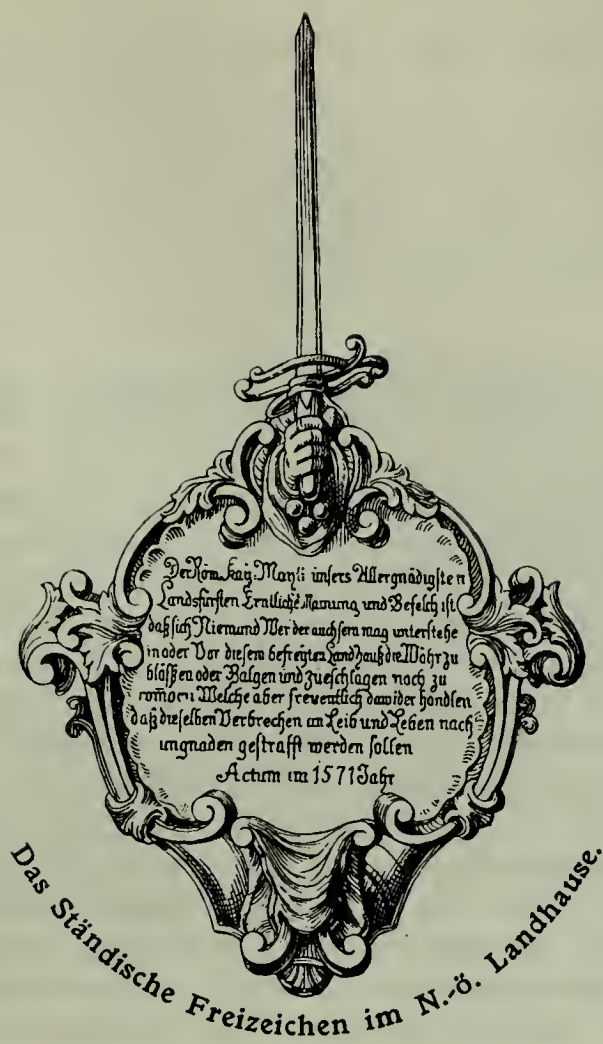 Der Röm. Kaÿ: Maytt: unsers Allergnädigsten
Landsfürsten Ernstliche Mainung und Befelch ist
daß sich Niemand Wer der auch sein mag unterstehe
in oder Vor diesem befreyten Landhauß die Wöhr zu
blössen oder Balgen und zueschlagen noch zu
romorn Welche aber freventlich dawider handlen
daß dieselben Verbrechen an Leib und Leben nach
ungnaden gestrafft werden sollen
Actum im 1571 Jahr
Das Ständische Freizeichen im N.-ö. Landhause.